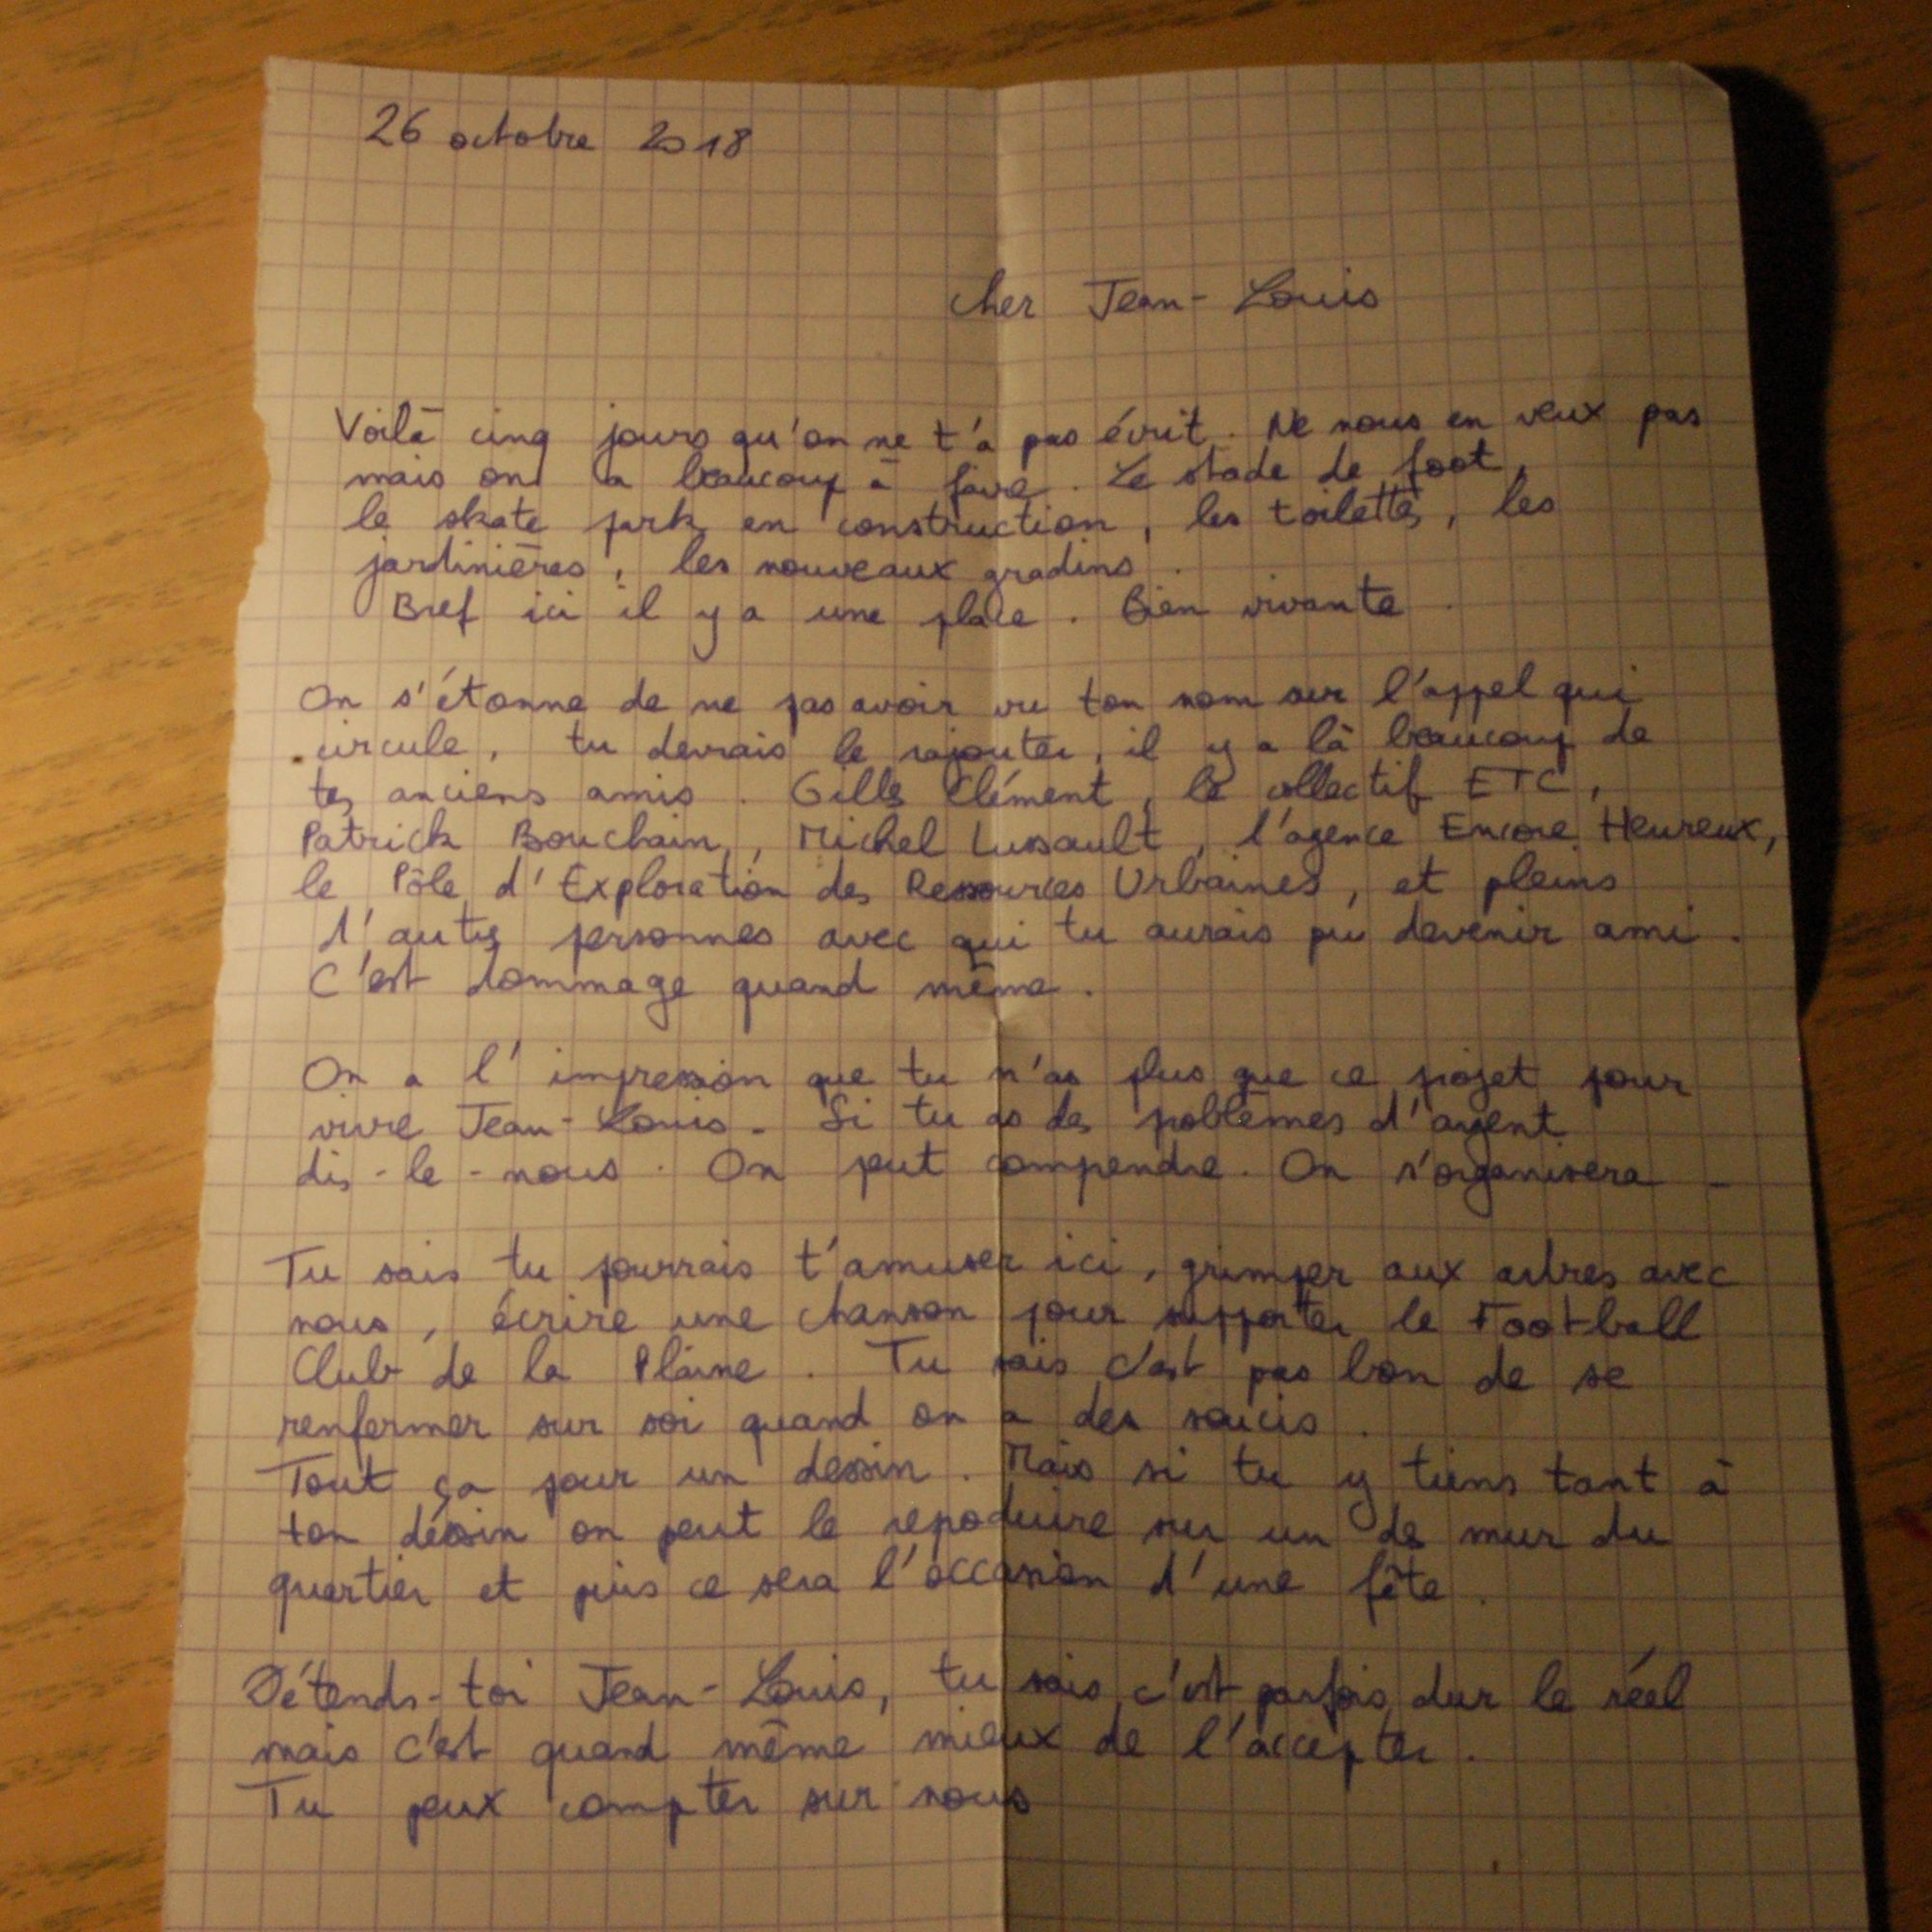 26 octobre 2018
Cher Jean-Louis
Voilà cinq jours qu'on ne t'a pas écrit. Ne nous en veux pas
mais on a beaucoup à faire. Le stade de foot,
le skate park en construction, les toilettes, les
jardinières, les nouveaux gradins.
Bref ici il y a une place. Bien vivante.
On s'étonne de ne pas avoir vu ton nom sur l'appel qui
circule, tu devrais le rajouter, il y a là beaucoup de
tes anciens amis. Gilles Clément, le collectif ETC,
Patrick Bouchain, Michel Lussault, l'agence Encore Heureux,
le Pôle d'Exploration des Ressources Urbaines, et pleins
d'autres personnes avec qui tu aurais pu devenir ami.
C'est dommage quand même.
On a l'impression que tu n'as plus que ce projet pour
vivre Jean-Louis. Si tu as des problèmes d'argent
dis-le-nous. On peut compendre. On s'organisera.
Tu sais tu pourrais t'amuser ici, grimper aux arbres avec
nous, écrire une chanson pour supporter le Football
Club de la Plaine. Tu sais c'est pas bon de se
renfermer sur soi quand on a des soucis.
Tout ça pour un dessin. Mais si tu y tiens tant à
ton dessin on peut le repoduire sur un des mur du
quartier et puis ce sera l'occasion d'une fête.
Détends-toi Jean-Louis, tu sais, c'est parfois dur le réel
mais c'est quand même mieux de l'accepter.
Tu peux compter sur nous